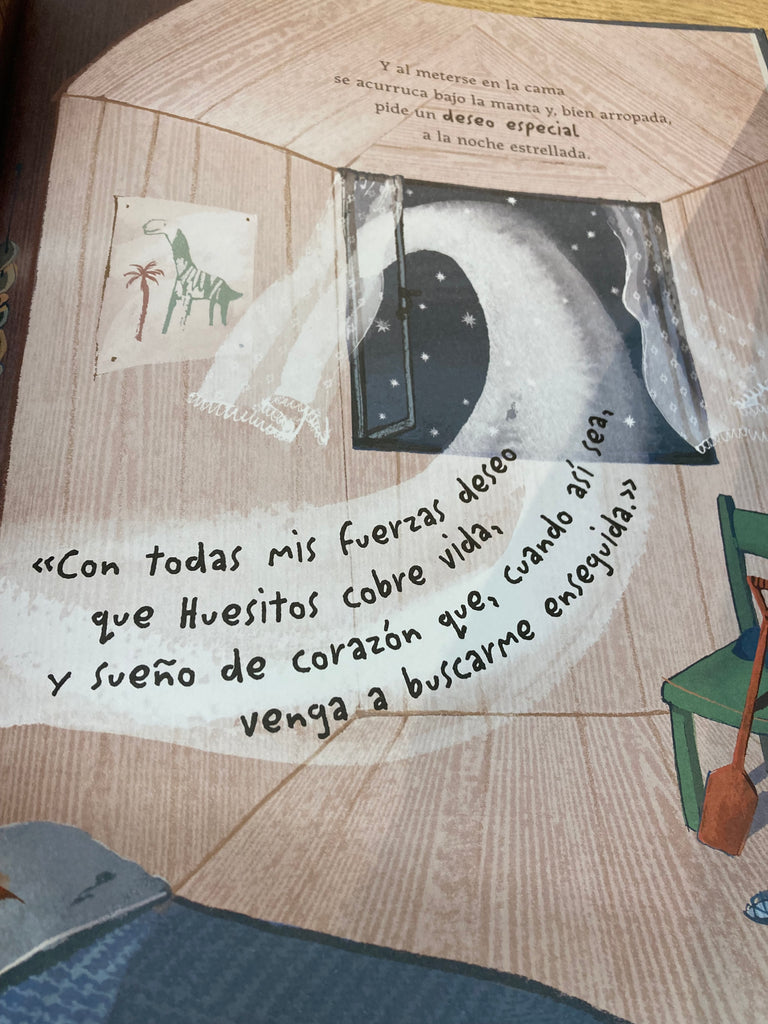 Y al meterse en la cama
se acurruca bajo la manta y, bien arropada,
pide un deseo especial
a la noche estrellada.
«Con todas mis fuerzas deseo
que Huesitos cobre vida,
y sueño de corazón que, cuando así sea,
venga a buscarme enseguida.»